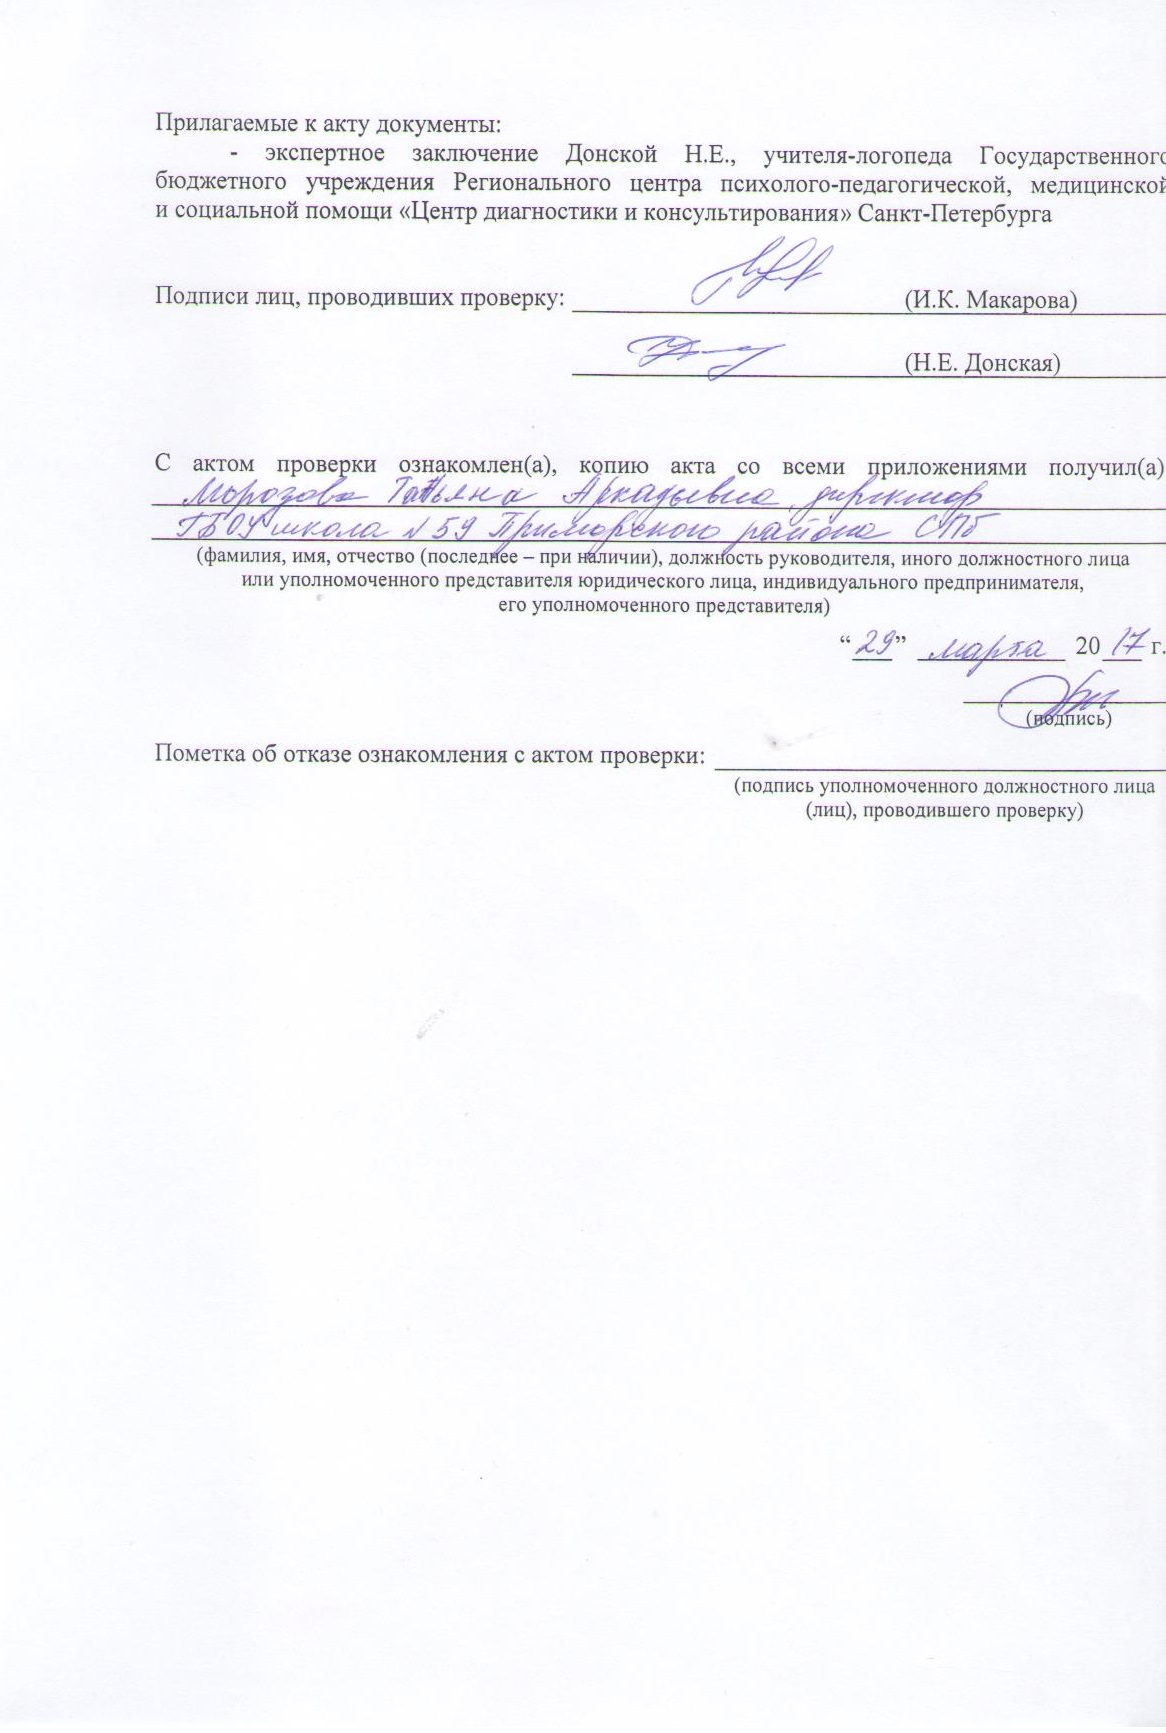 Прилагаемые к акту документы:
- экспертное заключение Донской Н.Е., учителя-логопеда Государственного
бюджетного учреждения Регионального центра психолого-педагогической, медицинской
и социальной помощи «Центр диагностики и консультирования» Санкт-Петербурга
Подписи лиц, проводивших проверку: (И.К. Макарова)
(Н.Е. Донская)
С актом проверки ознакомлен(а), копию акта со всеми приложениями получил(а)
Морозова Татьяна Аркадьевна, директор
ГБОУ школа №59 Приморского района СПб
(фамилия, имя, отчество (последнее – при наличии), должность руководителя, иного должностного лица
или уполномоченного представителя юридического лица, индивидуального предпринимателя,
его уполномоченного представителя)
“29” марта 2017 г.
(подпись)
Пометка об отказе ознакомления с актом проверки:
(подпись уполномоченного должностного лица
(лиц), проводившего проверку)